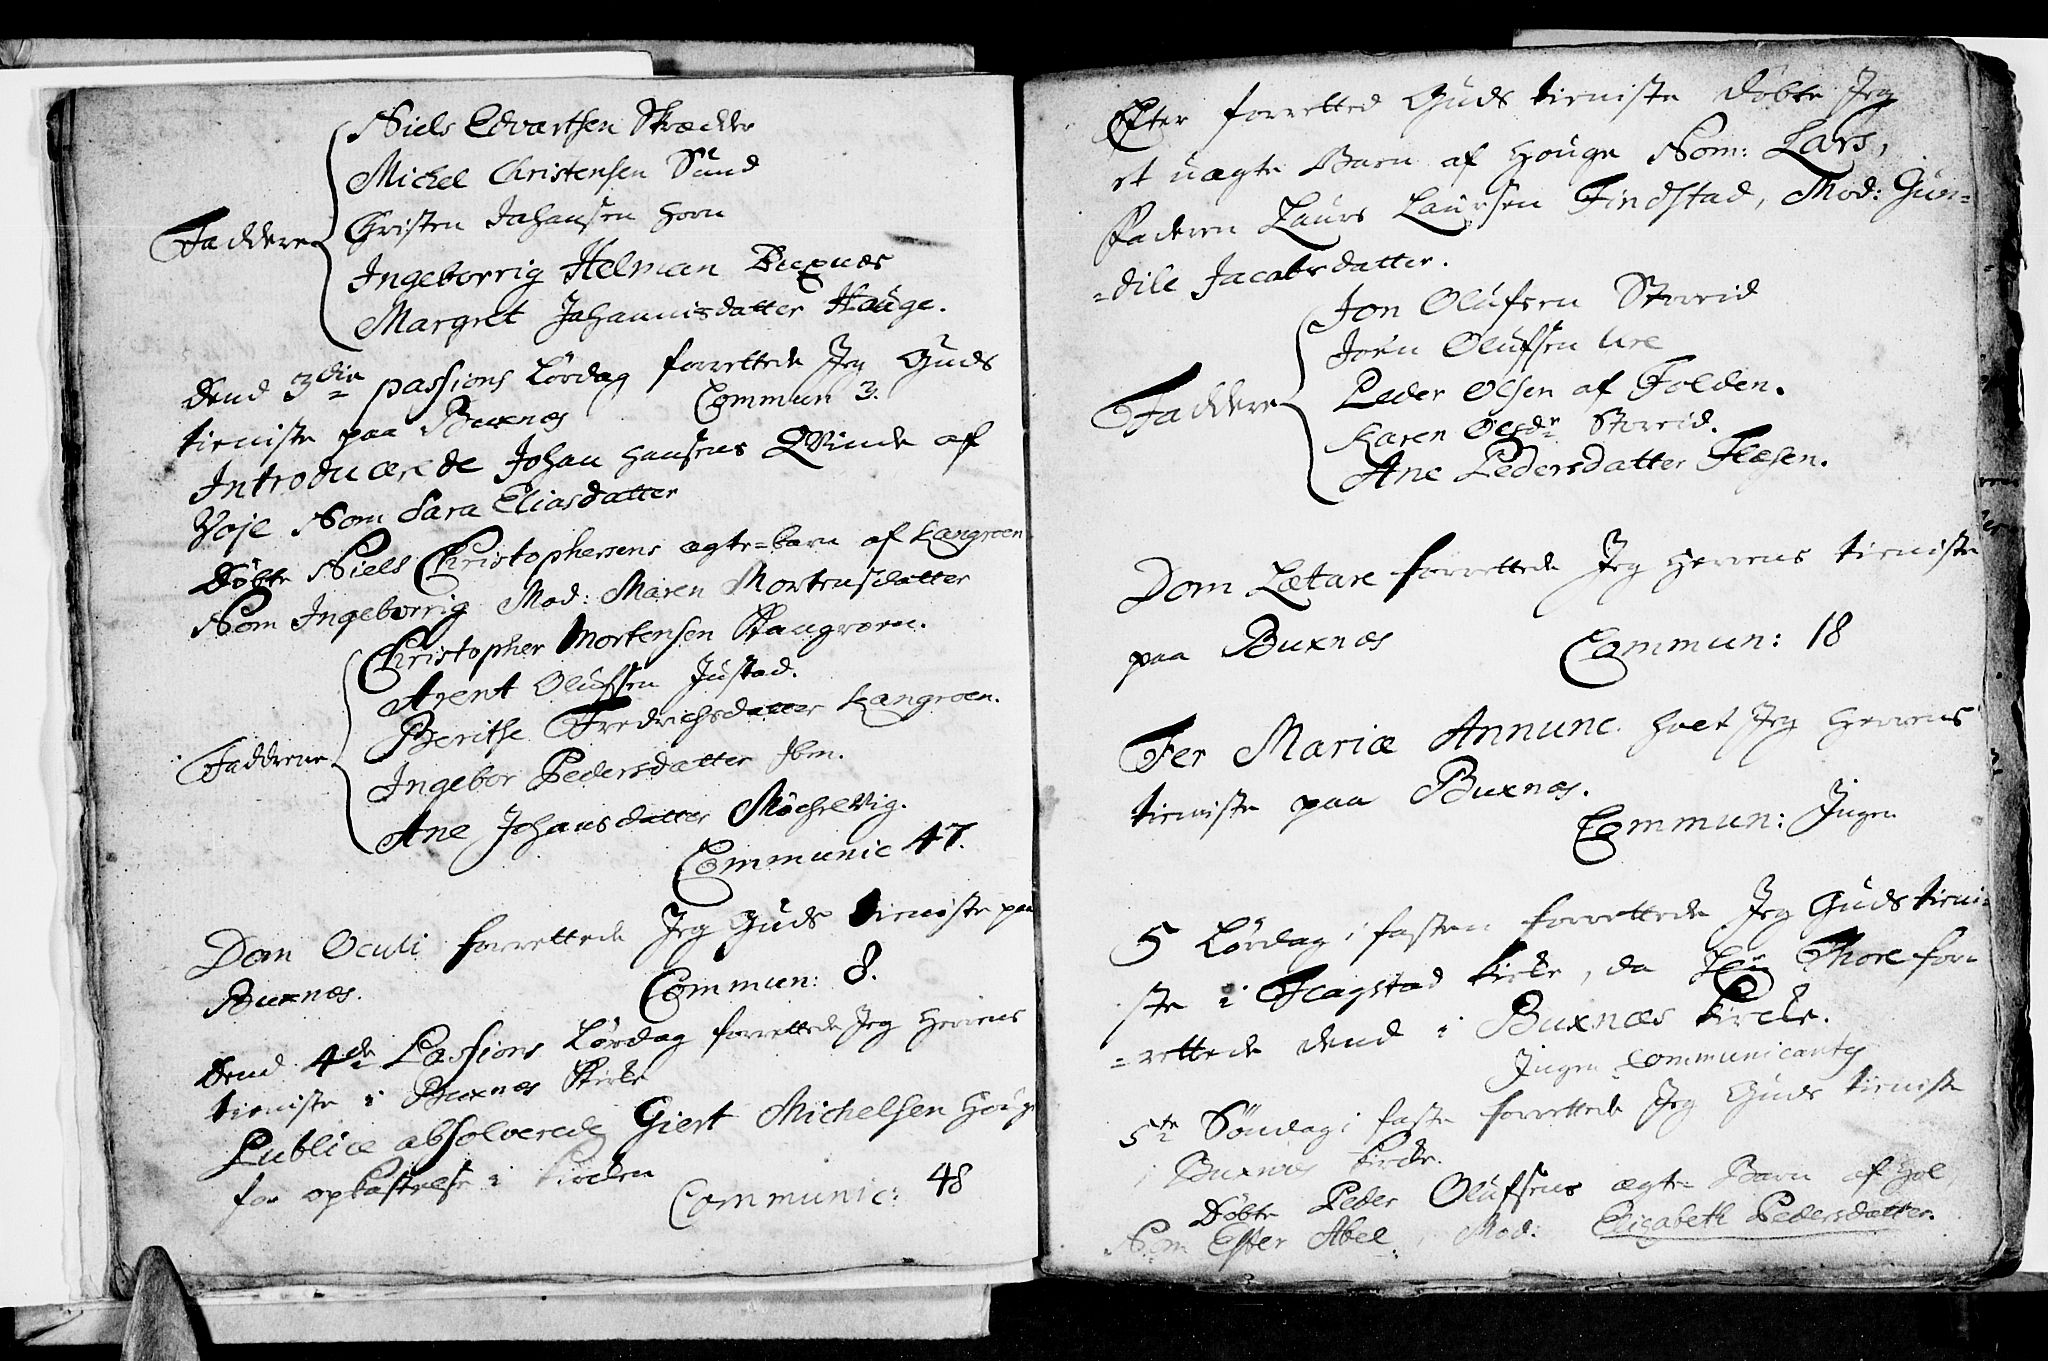 Niels Edvartsen Skrædder
Michel Christensen Sund
Faddere Christen Johansen Horn
Ingeborrig Helman Buxnæs
Margret Johannisdatter Hauge.
Dend 3die passions Lørdag forrettede Jeg Guds
tieniste paa Buxnæs Commun 3.
Introducerede Johan Hansens Qvinde af
Voje Nom Sara Eliasdatter
Døbte Niels Christophersens ægte-barn af Langroen
Nom Ingeborrig Mod: Maren Mortensdatter
Christopher Mortensen
Arent Olufsen Justad.
Berithe Fredrichsdatter Langroen.
Fadderne Ingebor Pedersdatter Ibm.
Ane Johansdatter Møchelvig.
Communic 47.
Dom Oculi forrettede Jeg Guds tieniste paa
Buxnæs. Commun: 8.
Dend 4de Passions Lørdag forrettede Jeg Herrens
tieniste i Buxnæs Kirke
Publice absolverede Giert Michelsen
for opkastelse i Kirken
Communic: 48
Efter forretted Guds tieniste døbte Jeg
et uægte Barn af Houge Nom: Lars,
Faderen Laurs Laursen Findstad, Mod: Gun-
-dile Jacobsdatter.
Jon Olufsen Storeid
Joen Olufsen Ure
Faddere Peder Olsen af Folden.
Karen Olsdr Storeid.
Ane Pedersdatter Flæsen.
Dom Lætare forrettede Jeg Herrens tieniste
paa Buxnæs Commun: 18
Fer Mariæ Annunc. holt Jeg Herrens
tieniste paa Buxnæs.
Commun: Ingen
5 Lørdag i fasten forrettede Jeg Guds tieni-
ste i Flagstad Kirke, da Thore for-
-rettede dend i Buxnæs Kirke.
Ingen Communicantes
5te Søndag i faste forrettede Jeg Guds tieniste
i Buxnæs Kirke.
Døbte Peder Olufsens ægte Barn af Hol
Nom Ester Abel, Mod: Elisabeth Pedersdatter.